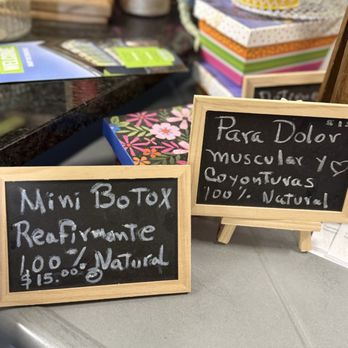 Mini Botox
Reafirmante
100% Natural
$15.00
Para Dolor
muscular y
Coyonturas
100% Natural